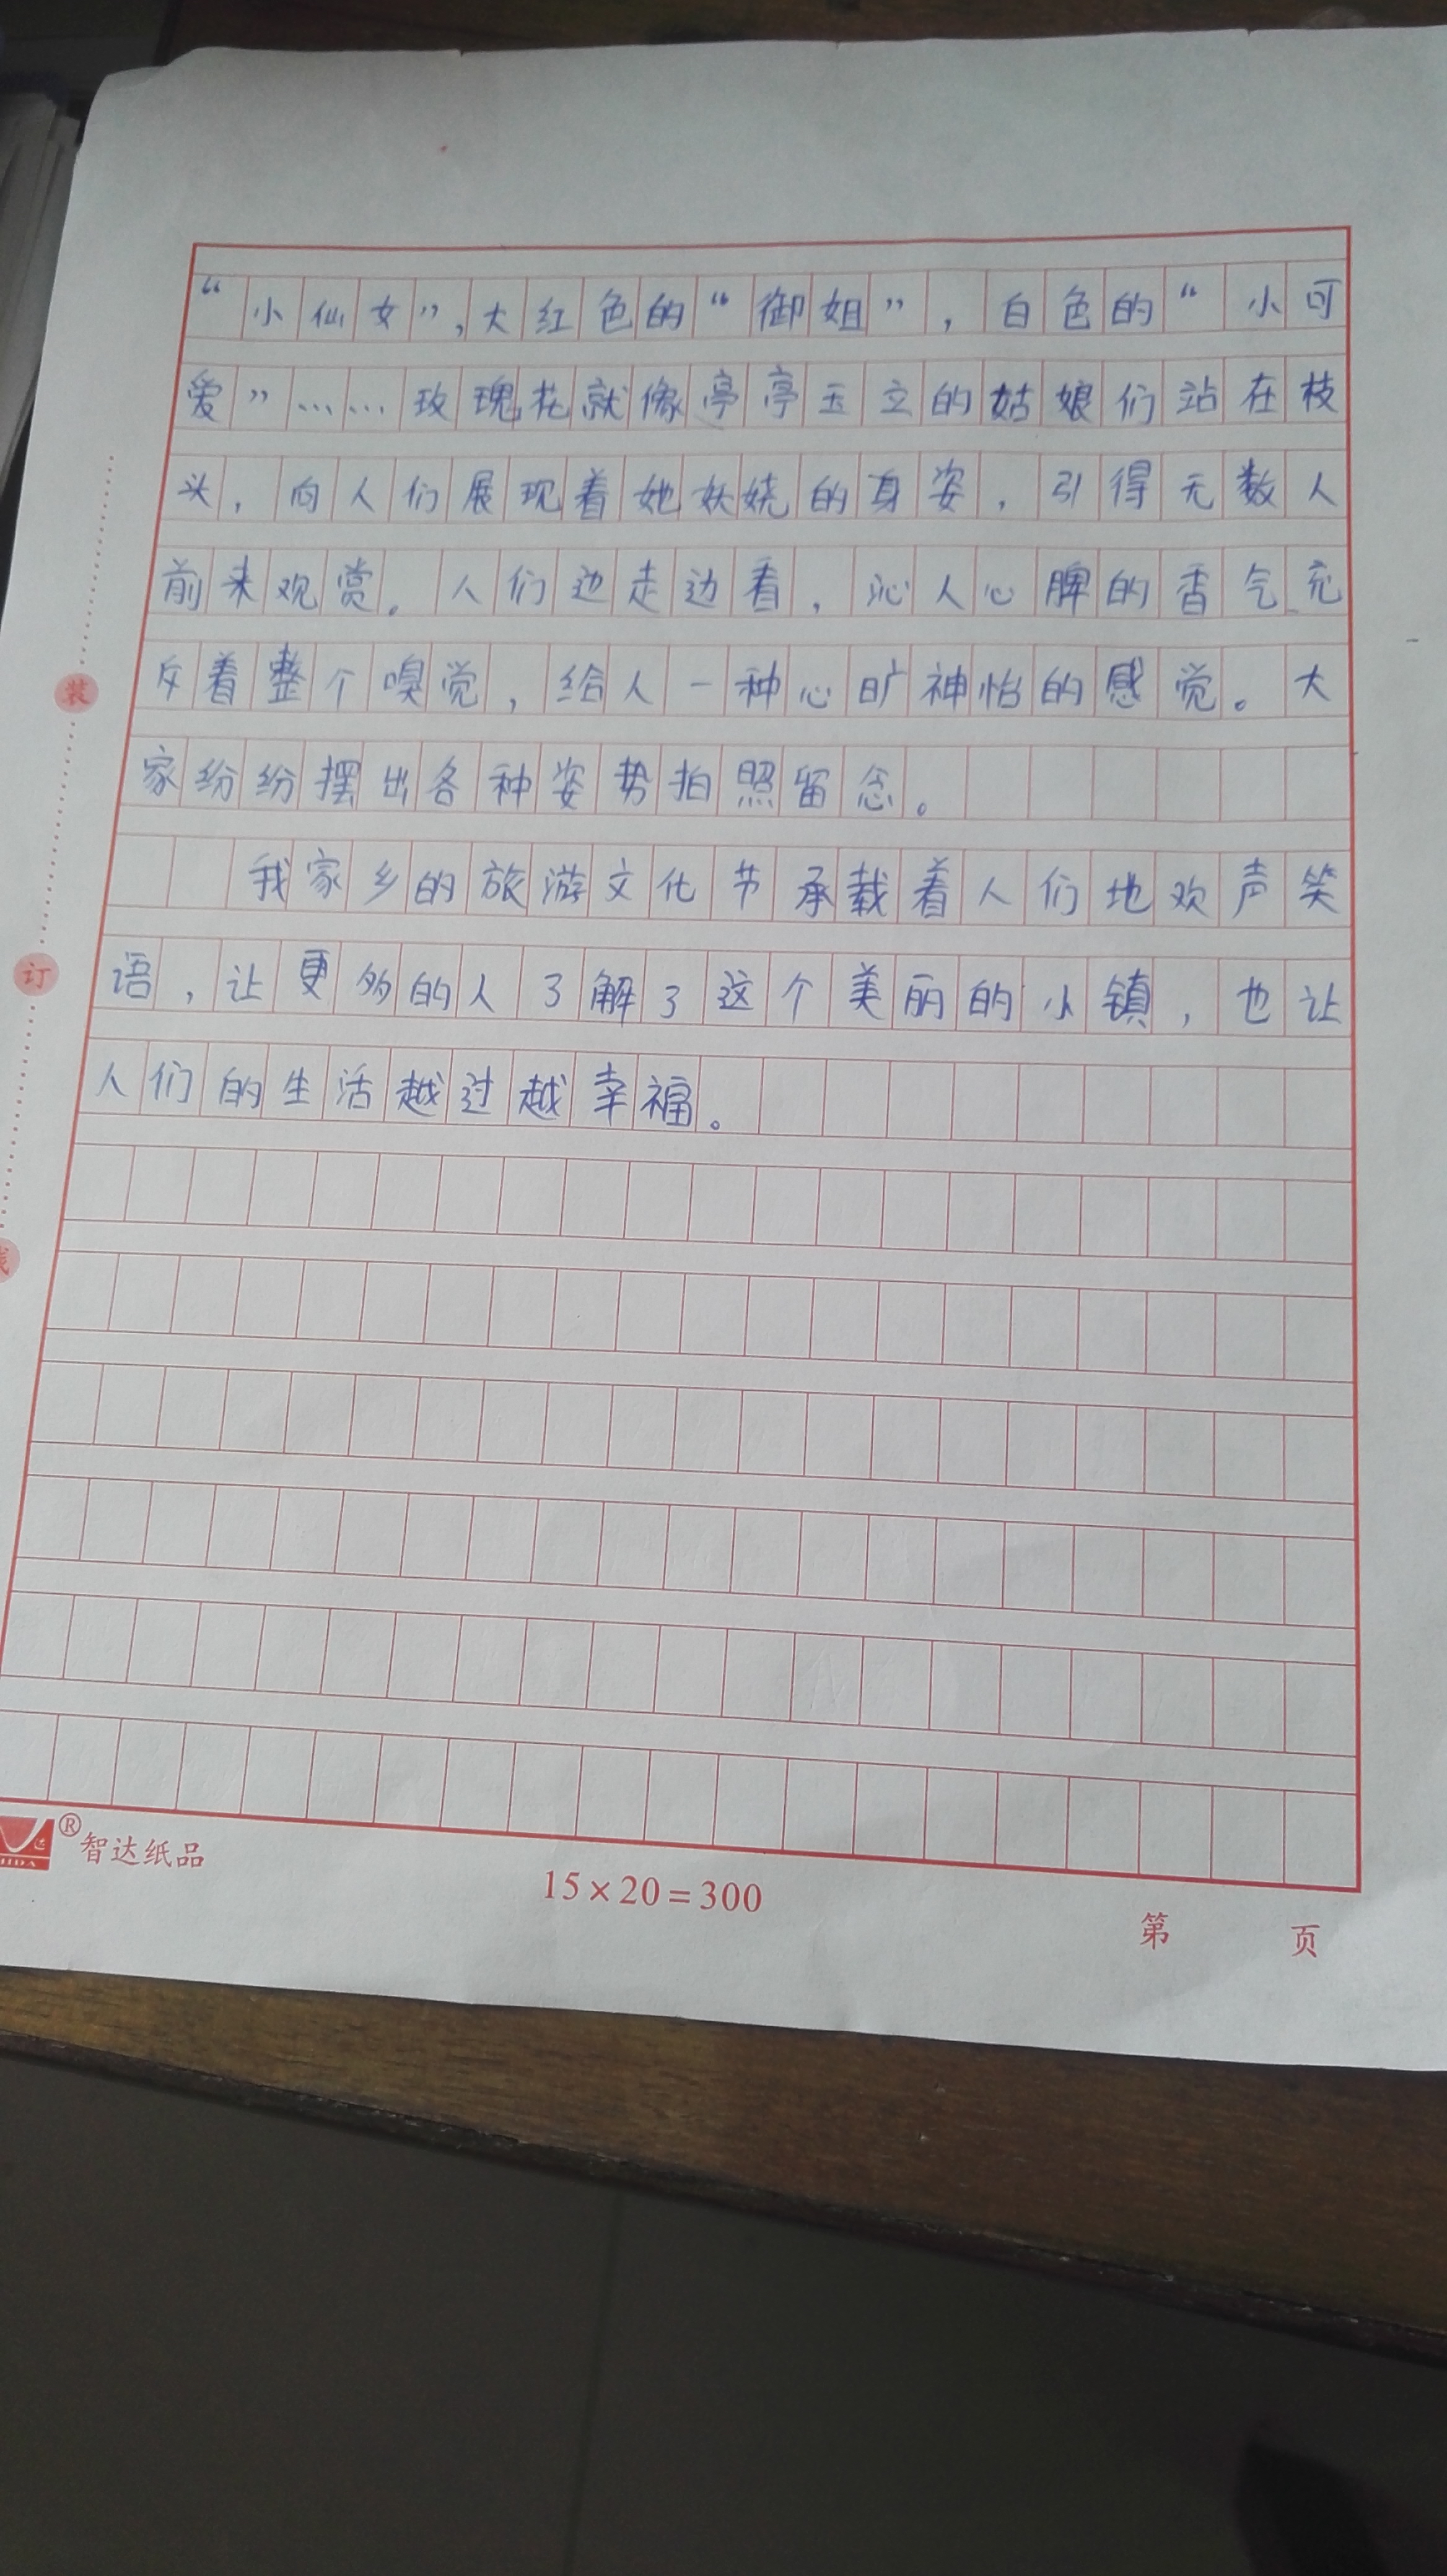 “小仙女”,大红色的“御姐”,白色的“小可
爱”……玫瑰花就像亭亭玉立的姑娘们站在枝
头,向人们展现着她妖娆的身姿,引得无数人
前来观赏。人们边走边看,沁人心脾的香气充
斥着整个嗅觉,给人一种心旷神怡的感觉。大
家纷纷摆出各种姿势拍照留念。
我家乡的旅游文化节承载着人们地欢声笑
语,让更多的人了解了这个美丽的小镇,也让
人们的生活越过越幸福。
装
订
线
®智达纸品
15×20=300
第 页